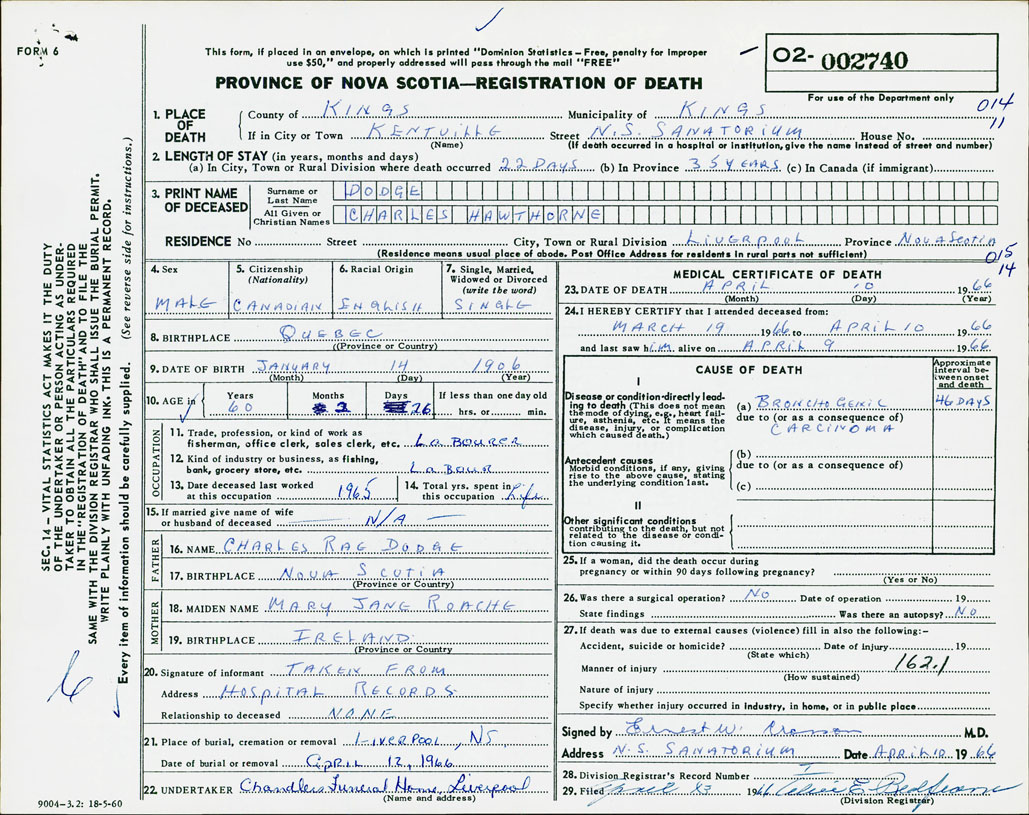 FORM 6
This form, if placed in an envelope, on which is printed "Dominion Statistics – Free, penalty for improper
use $50," and properly addressed will pass through the mail "FREE"
PROVINCE OF NOVA SCOTIA—REGISTRATION OF DEATH
02- 002740
For use of the Department only
014
11
1. PLACE OF DEATH
County of KINGS Municipality of KINGS
If in City or Town KENTVILLE Street N.S. SANATORIUM House No.
(Name) (If death occurred in a hospital or institution, give the name instead of street and number)
2. LENGTH OF STAY (in years, months and days)
(a) In City, Town or Rural Division where death occurred 22 DAYS (b) In Province 35 YEARS (c) In Canada (if immigrant)
3. PRINT NAME OF DECEASED
Surname or Last Name DODGE
All Given or Christian Names CHARLES HAWTHORNE
RESIDENCE No Street City, Town or Rural Division LIVERPOOL Province NOVA SCOTIA
(Residence means usual place of abode. Post Office Address for residents in rural parts not sufficient)
015
14
4. Sex MALE
5. Citizenship (Nationality) CANADIAN
6. Racial Origin ENGLISH
7. Single, Married, Widowed or Divorced (write the word) SINGLE
8. BIRTHPLACE QUEBEC
(Province or Country)
9. DATE OF BIRTH JANUARY 14 1906
(Month) (Day) (Year)
10. AGE in Years 60 Months 2 Days 26 If less than one day old hrs. or min.
OCCUPATION
11. Trade, profession, or kind of work as
fisherman, office clerk, sales clerk, etc. LABOURER
12. Kind of industry or business, as fishing,
bank, grocery store, etc. LABOUR
13. Date deceased last worked at this occupation 1965
14. Total yrs. spent in this occupation Life
15. If married give name of wife
or husband of deceased N/A
FATHER
16. NAME CHARLES RAE DODGE
17. BIRTHPLACE NOVA SCOTIA
(Province or Country)
MOTHER
18. MAIDEN NAME MARY JANE ROACHE
19. BIRTHPLACE IRELAND
(Province or Country)
20. Signature of informant TAKEN FROM
Address HOSPITAL RECORDS
Relationship to deceased NONE
21. Place of burial, cremation or removal LIVERPOOL, NS
Date of burial or removal APRIL 12, 1966
22 UNDERTAKER Chandlers Funeral Home, Liverpool
(Name and address)
9004–3.2: 18-5-60
MEDICAL CERTIFICATE OF DEATH
23. DATE OF DEATH APRIL 10 1966
(Month) (Day) (Year)
24. I HEREBY CERTIFY that I attended deceased from:
MARCH 19 1966 to APRIL 10 1966
and last saw him alive on APRIL 9 1966
CAUSE OF DEATH
Approximate interval between onset and death
I
Disease or condition directly leading to death (This does not mean the mode of dying, e.g., heart failure, asthenia, etc. It means the disease, injury, or complication which caused death.)
(a) BRONCHOGENIC 46 DAYS
due to (or as a consequence of)
CARCINOMA
Antecedent causes
Morbid conditions, if any, giving rise to the above cause, stating the underlying condition last.
(b)
due to (or as a consequence of)
(c)
II
Other significant conditions
contributing to the death, but not related to the disease or condition causing it.
25. If a woman, did the death occur during
pregnancy or within 90 days following pregnancy?
(Yes or No)
26. Was there a surgical operation? NO Date of operation 19
State findings Was there an autopsy? NO
27. If death was due to external causes (violence) fill in also the following:–
Accident, suicide or homicide? Date of injury 19
(State which)
Manner of injury 162.1
(How sustained)
Nature of injury
Specify whether injury occurred in industry, in home, or in public place
Signed by Ernest W. M.D.
Address N.S. SANATORIUM Date APRIL 10 1966
28. Division Registrar's Record Number
29. Filed April 13 1966
(Division Registrar)
SEC. 14 – VITAL STATISTICS ACT MAKES IT THE DUTY
OF THE UNDERTAKER OR PERSON ACTING AS UNDER-
TAKER TO OBTAIN ALL THE PARTICULARS REQUIRED
IN THE "REGISTRATION OF DEATH" AND TO FILE THE
SAME WITH THE DIVISION REGISTRAR WHO SHALL ISSUE THE BURIAL PERMIT.
WRITE PLAINLY WITH UNFADING INK. THIS IS A PERMANENT RECORD.
Every item of information should be carefully supplied. (See reverse side for instructions.)